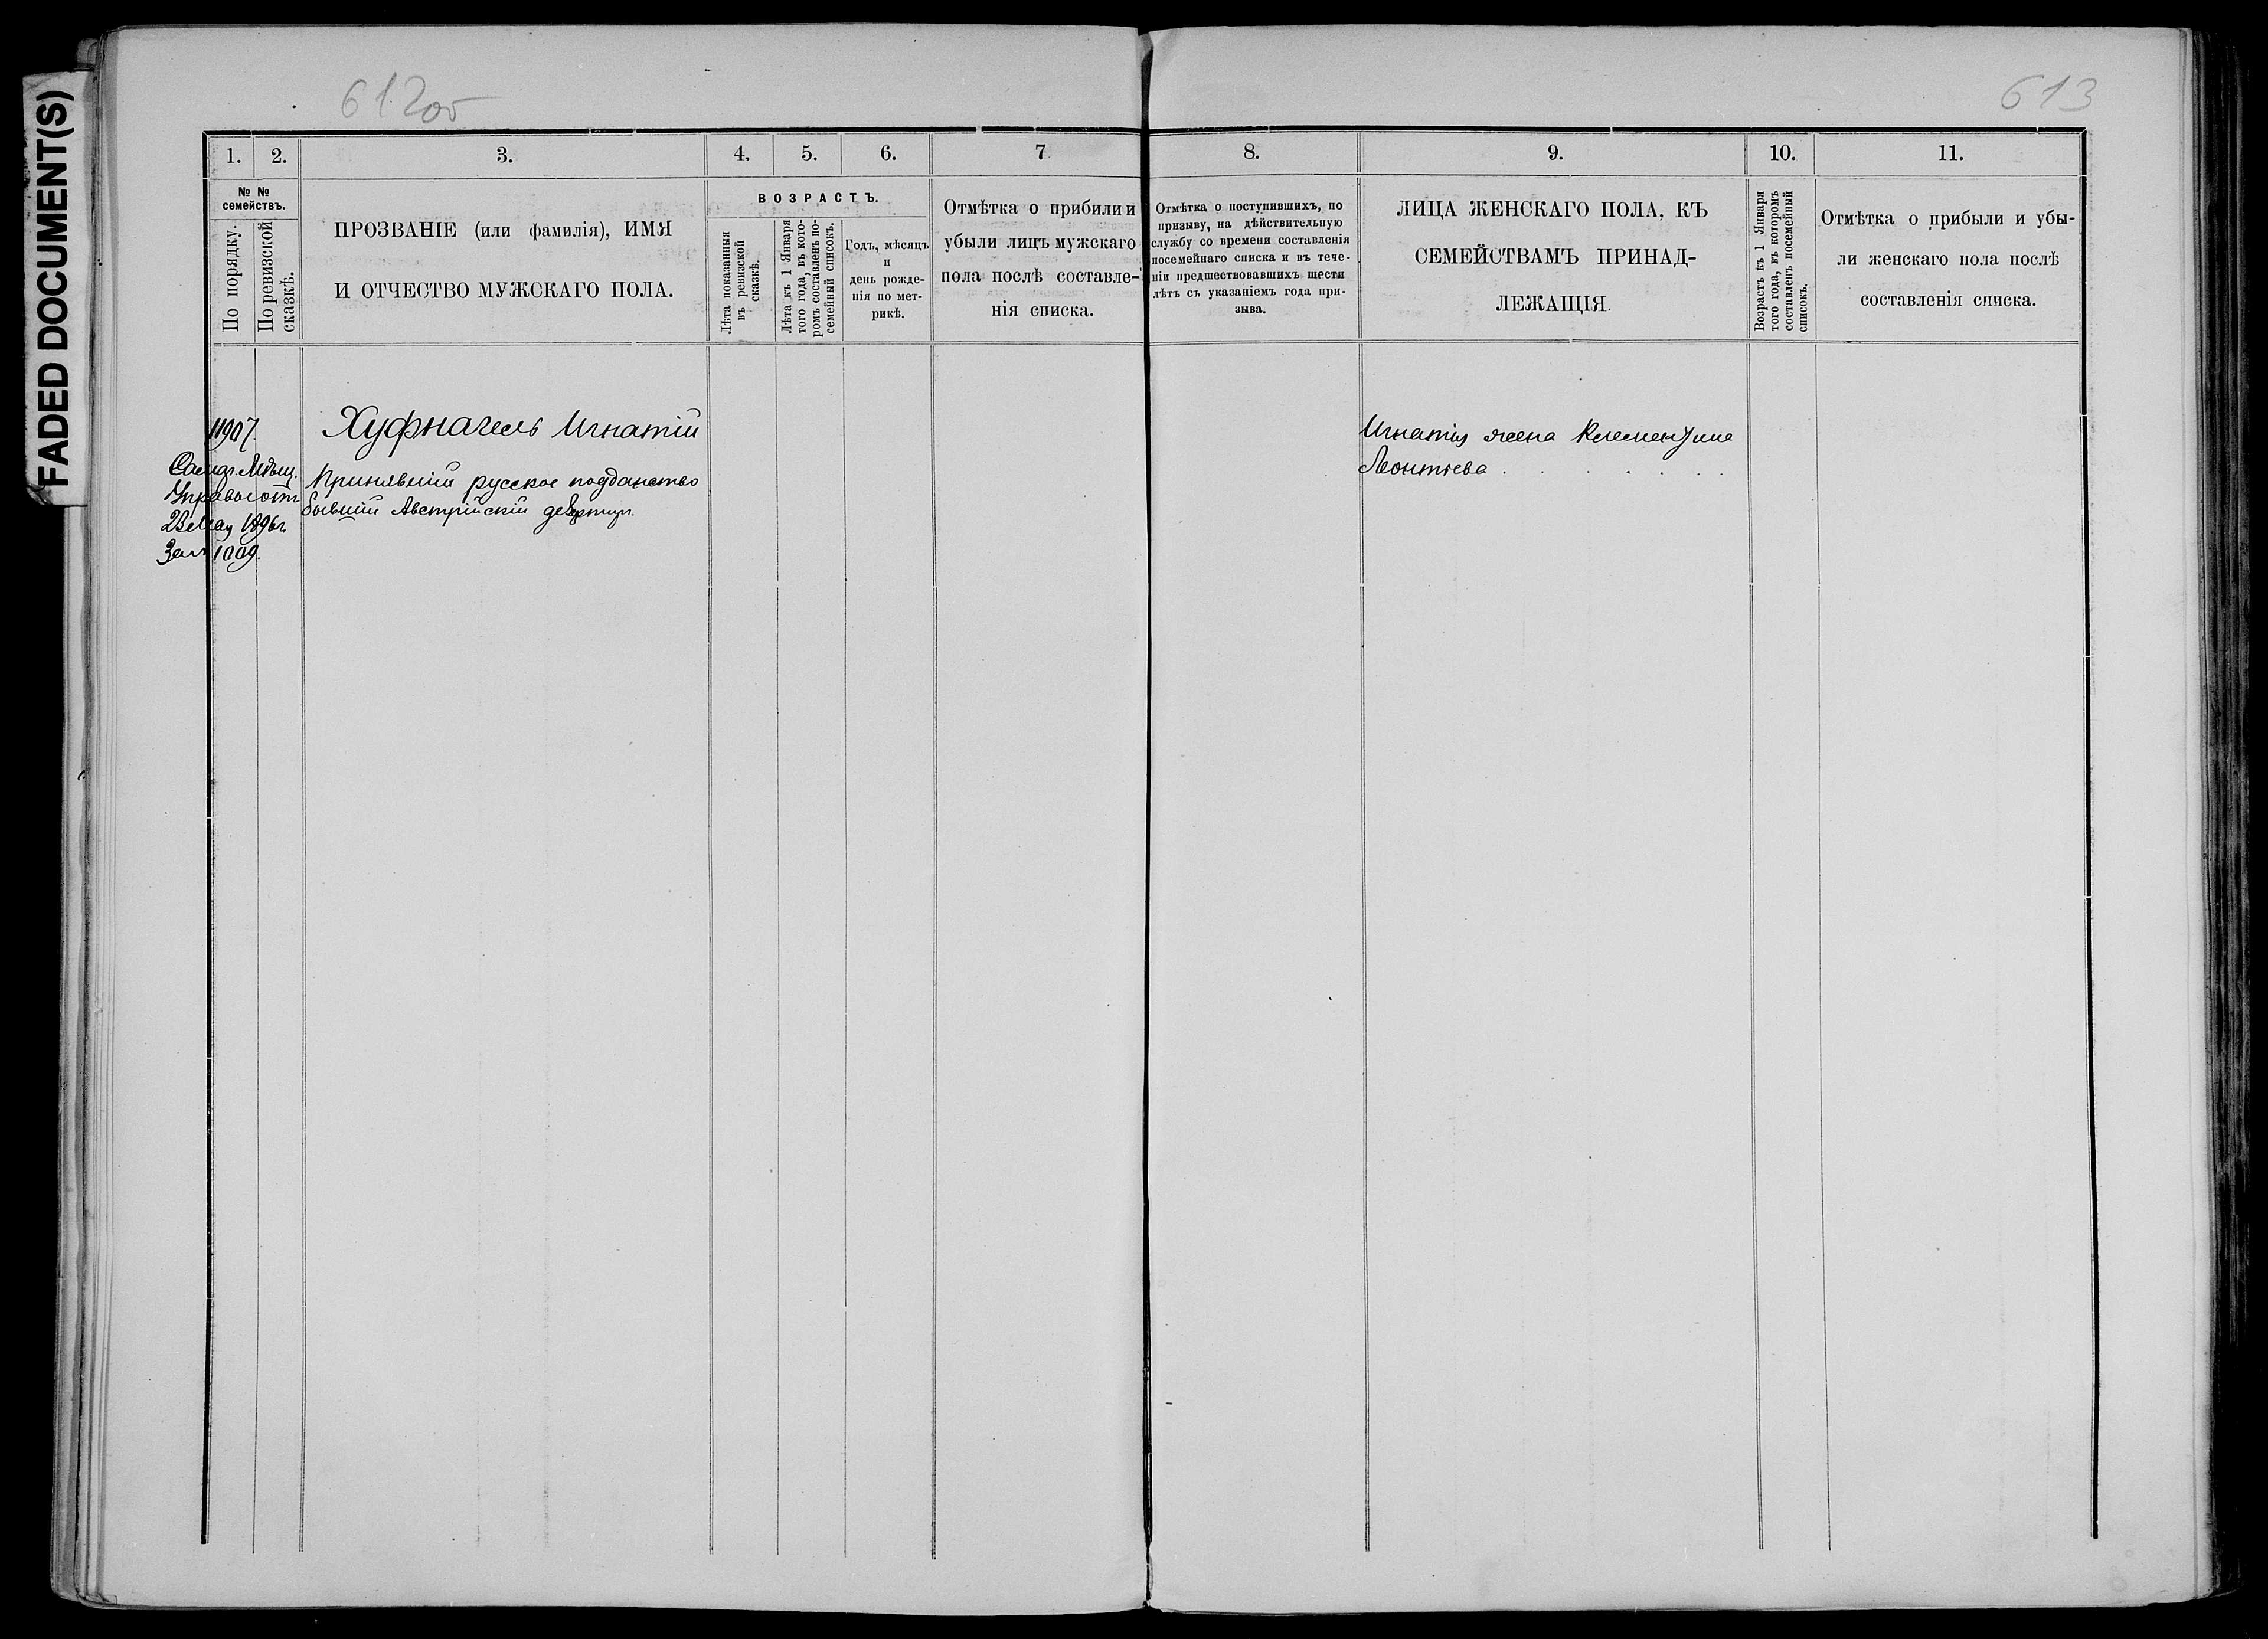 FADED DOCUMENT(S)
612об
613
1.
2.
3.
4.
5.
6.
7
8.
9.
10.
11.
№ №
семействъ.
По порядку.
По ревизской
сказкѣ.
ПРОЗВАНІЕ (или фамилія), ИМЯ
И ОТЧЕСТВО МУЖСКАГО ПОЛА.
ВОЗРАСТЪ.
Лѣта показанныя
въ ревизской
сказкѣ.
Лѣта къ 1 Января
того года, въ кото-
ромъ составленъ по-
семейный списокъ.
Годъ, мѣсяцъ
и
день рожде-
нія по мет-
рикѣ.
Отмѣтка о прибили и
убыли лицъ мужскаго
пола послѣ составле-
нія списка.
Отмѣтка о поступившихъ, по
призыву, на дѣйствительную
службу со времени составленія
посемейнаго списка и въ тече-
ніи предшествовавшихъ шести
лѣтъ съ указаніемъ года при-
зыва.
ЛИЦА ЖЕНСКАГО ПОЛА, КЪ
СЕМЕЙСТВАМЪ ПРИНАД-
ЛЕЖАЩІЯ.
Возрастъ къ 1 Января
того года, въ которомъ
составленъ посемейный
списокъ.
Отмѣтка о прибыли и убы-
ли женскаго пола послѣ
составленія списка.
11907.
Хуфнагель Игнатій
Мѣщ.
Управы отъ
23 Мая 1896 г.
За № 1009.
Принявшій русское подданство
бывшій Австрійскій
Игнатія жена Клементина
Леонтьева . . . . . .